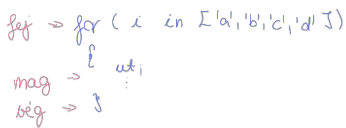 fej → for ( i in ['a','b','c','d'])
{
mag → ut;
⋮
vég → }